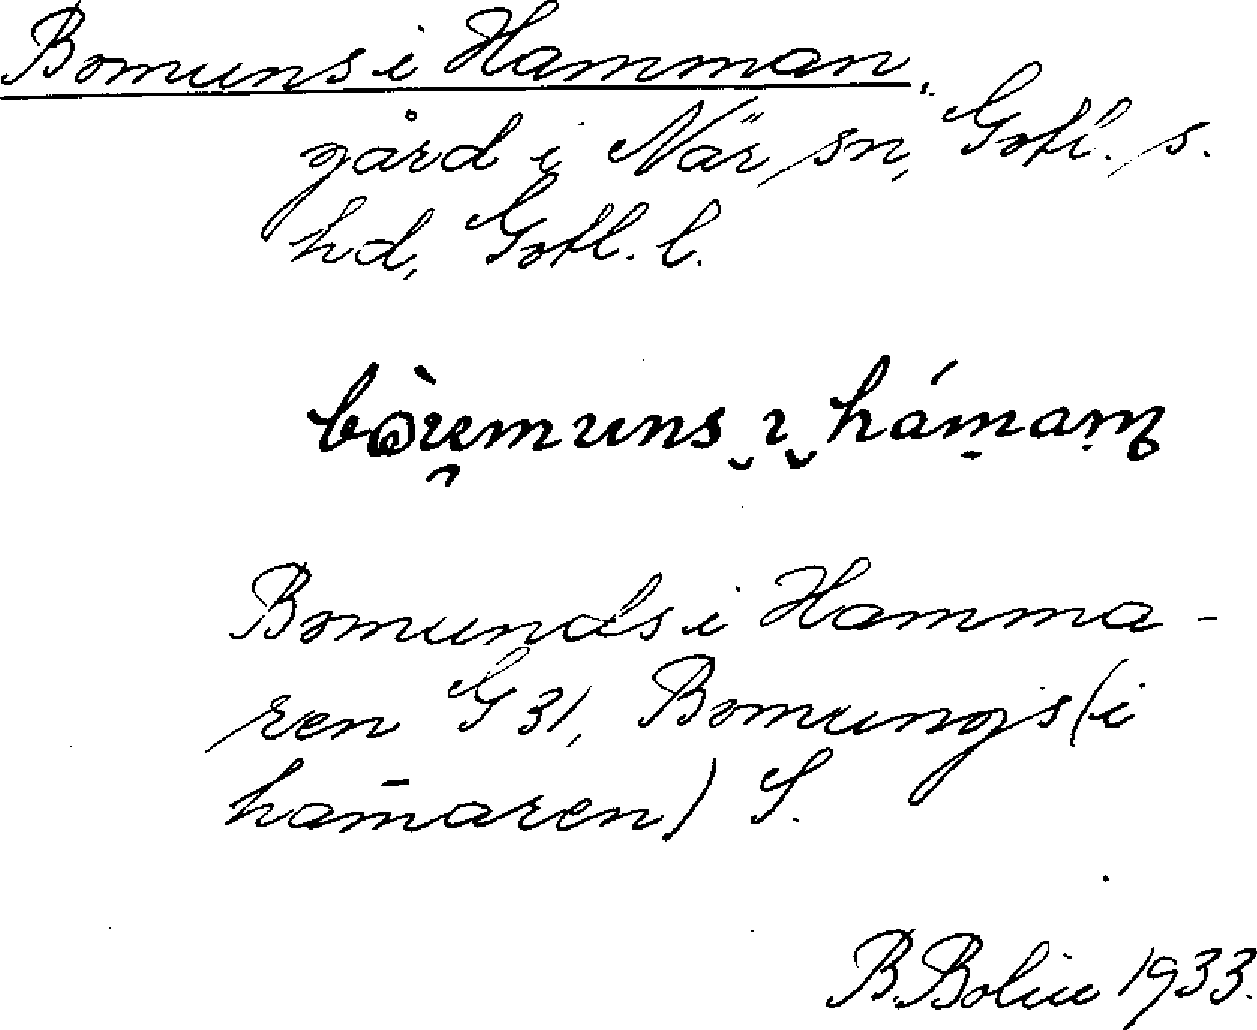 Bomuns i Hamman,
gård i När sn, Gotl. s.
hd, Gotl. l.
Bomunds i Hamma-
ren G 31, Bomungs (i
ham̄aren) S.
B. Bolin 1933.